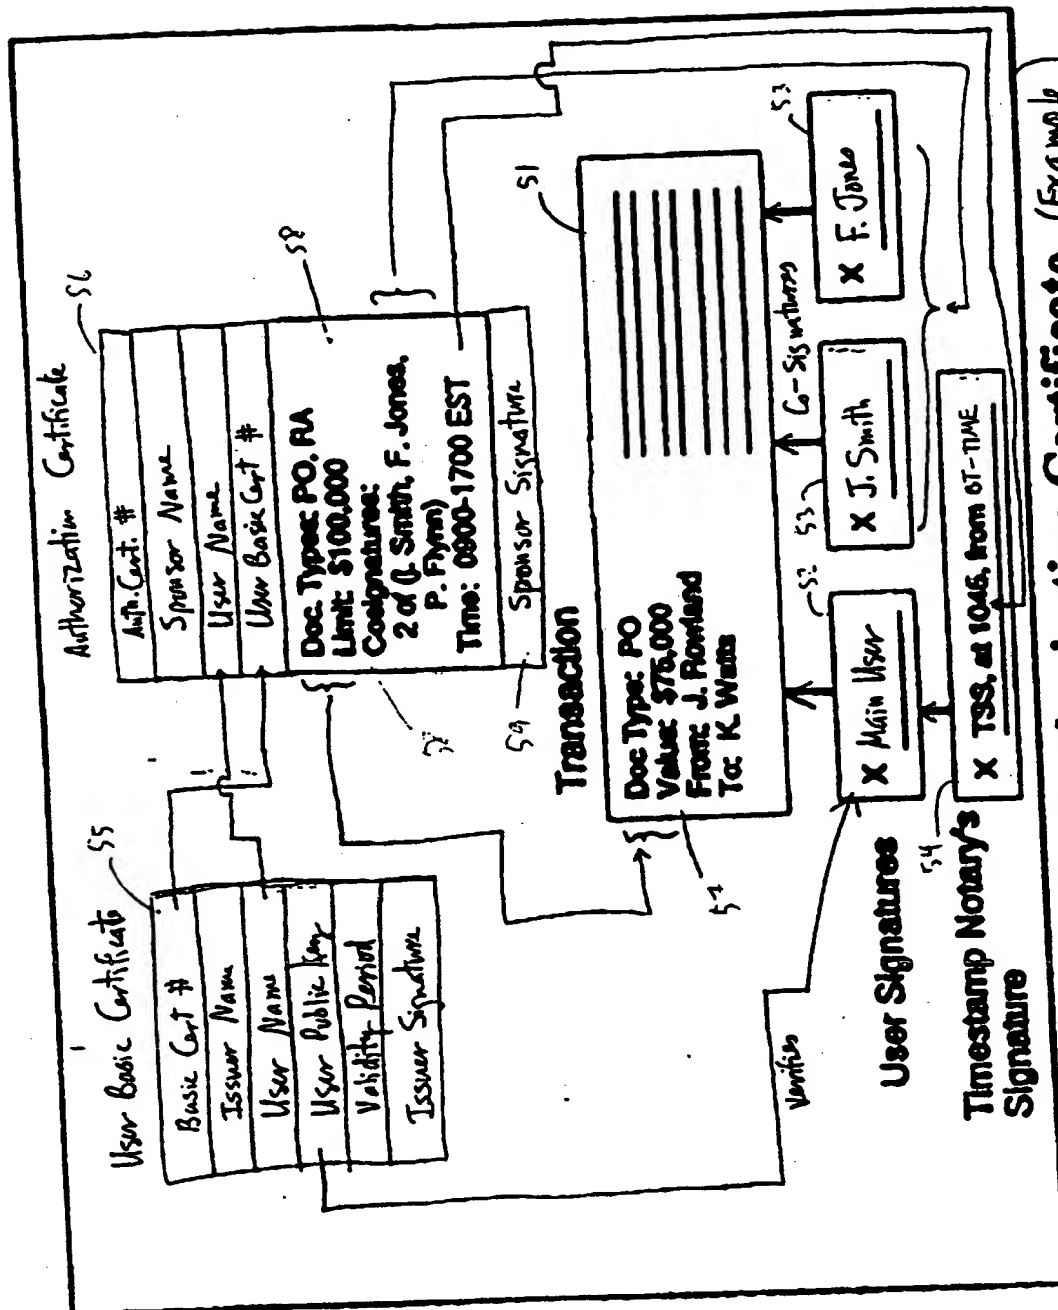 User Basic Certificate
55
Basic Cert #
Issuer Name
User Name
User Public Key
Validity Period
Issuer Signature
Authorization Certificate
56
Auth. Cert. #
Sponsor Name
User Name
User Basic Cert #
Doc Types: PO, RA
Limit: $100,000
Cosignatures:
2 of (J. Smith, F. Jones,
P. Flynn)
Time: 0900-1700 EST
58
Sponsor Signature
59
Transaction
51
Doc Type: PO
Value: $75,000
From: J. Rowland
To: K. Watts
57
Co-Signatures
verifies
52
X Main User
53
X J. Smith
53
X F. Jones
User Signatures
54
X TSS, at 1046, from OT-TIME
Timestamp Notary's
Signature
Certificate (Example